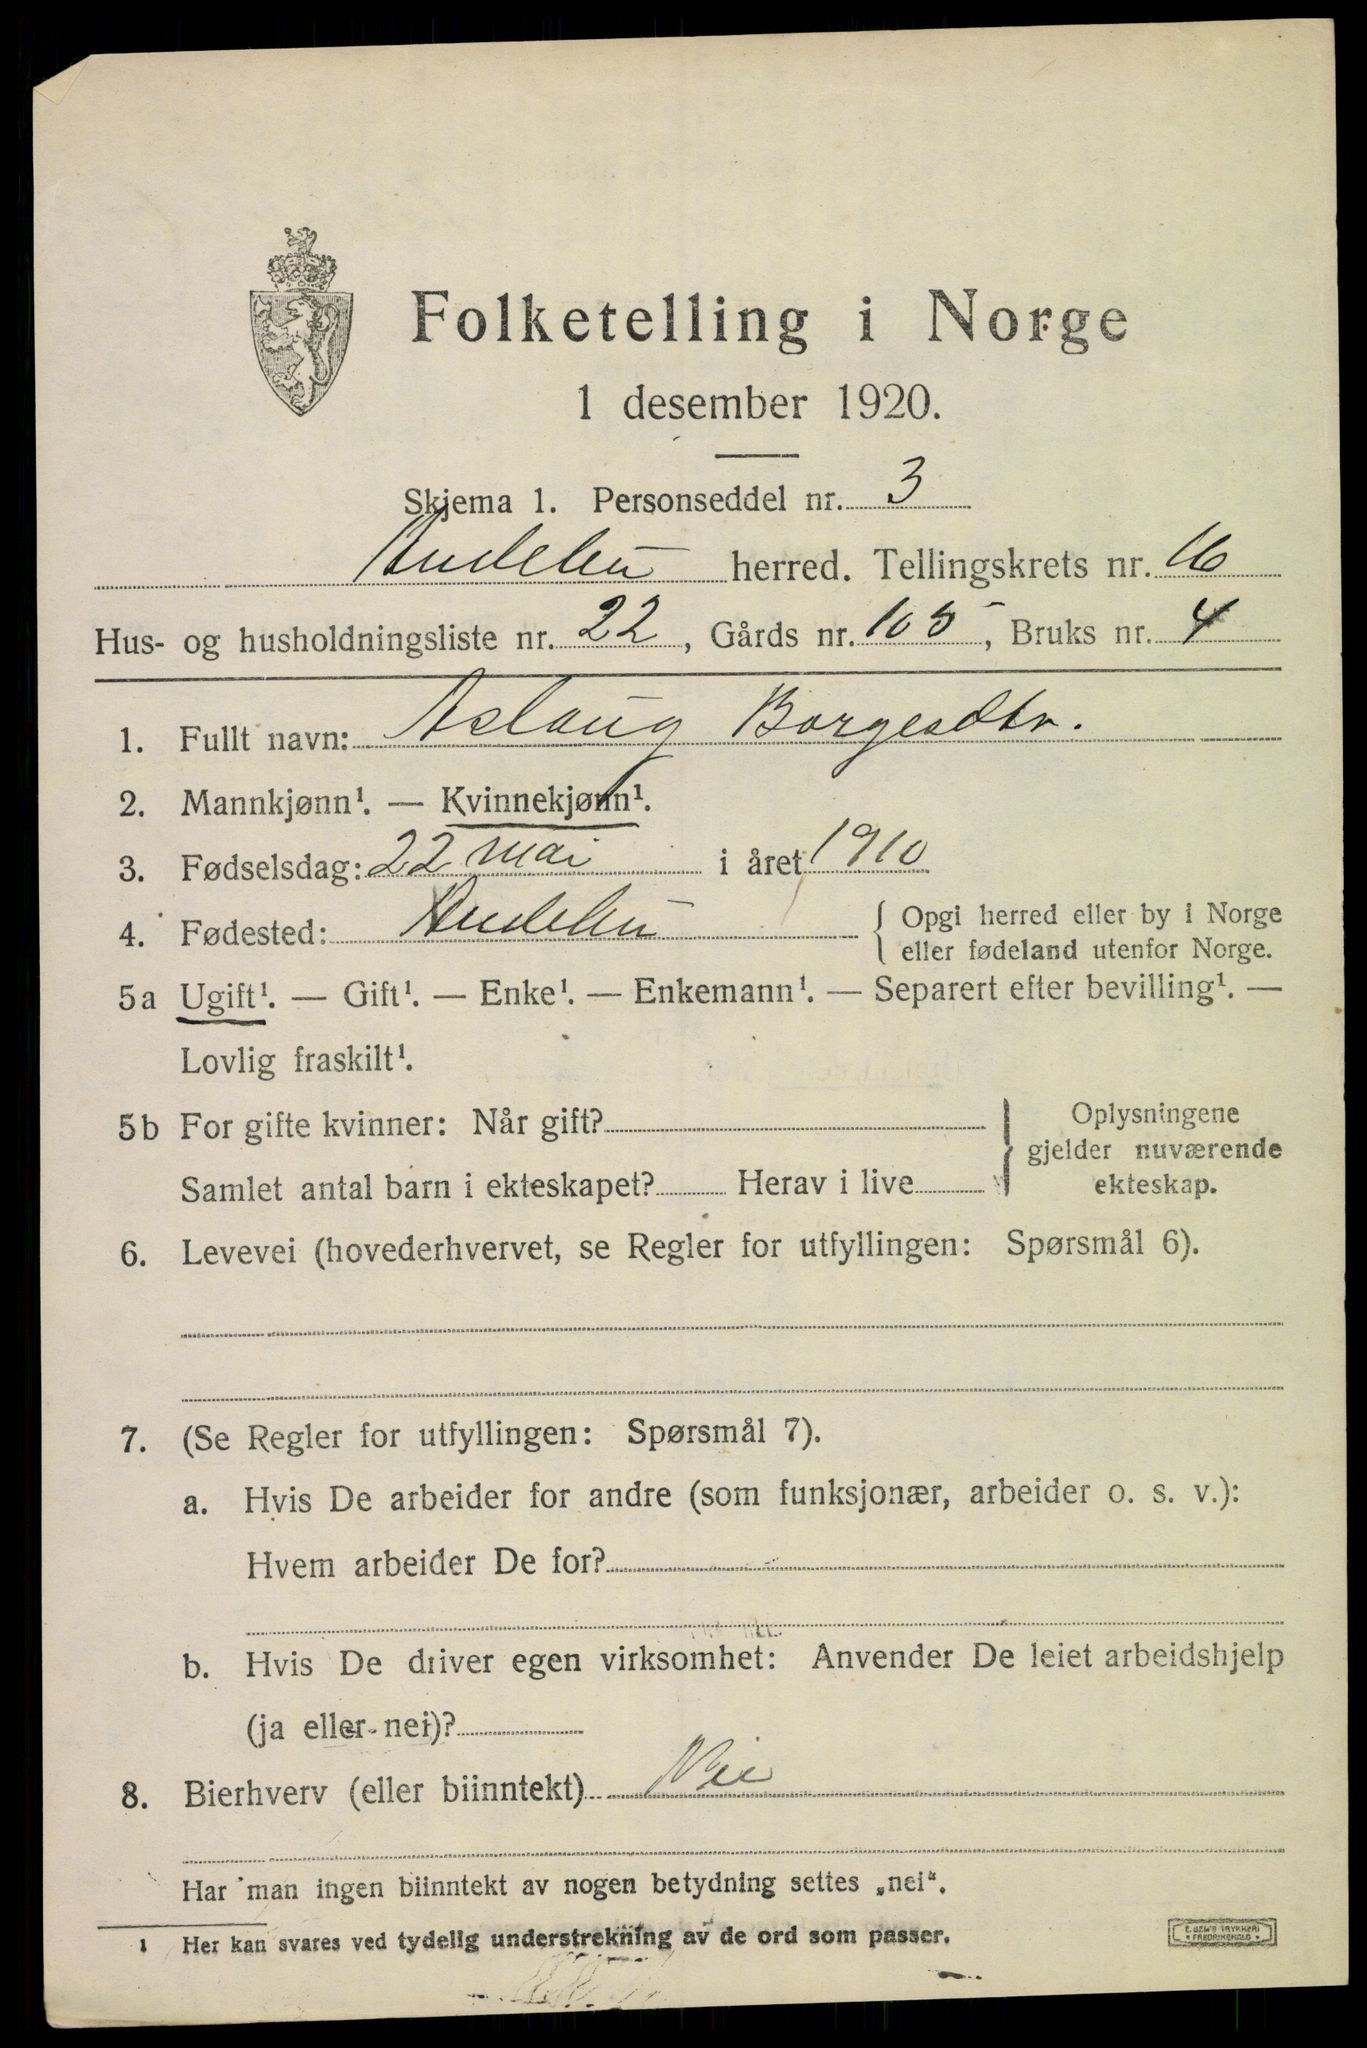 Folketelling i Norge
1 desember 1920.
Skjema 1. Personseddel nr. 3
herred. Tellingskrets nr. 16
Hus- og husholdningsliste nr. 22, Gårds nr. 105, Bruks nr. 4
1. Fullt navn: Aslaug Borgesdtr.
2. Mannkjønn¹. — Kvinnekjønn¹.
3. Fødselsdag: 22 mai i året 1910
4. Fødested: { Opgi herred eller by i Norge
eller fødeland utenfor Norge.
5a Ugift¹. — Gift¹. — Enke¹. — Enkemann¹. — Separert efter bevilling¹. —
Lovlig fraskilt¹.
5b For gifte kvinner: Når gift? } Oplysningene
gjelder nuværende
Samlet antal barn i ekteskapet? Herav i live ekteskap.
6. Levevei (hovederhvervet, se Regler for utfyllingen: Spørsmål 6).
7. (Se Regler for utfyllingen: Spørsmål 7).
a. Hvis De arbeider for andre (som funksjonær, arbeider o. s. v.):
Hvem arbeider De for?
b. Hvis De driver egen virksomhet: Anvender De leiet arbeidshjelp
(ja eller nei)?
8. Bierhverv (eller biinntekt) Nei
Har man ingen biinntekt av nogen betydning settes „nei“.
1 Her kan svares ved tydelig understrekning av de ord som passer.
E. SEM'S TRYKKERI
FREDRIKSHALD